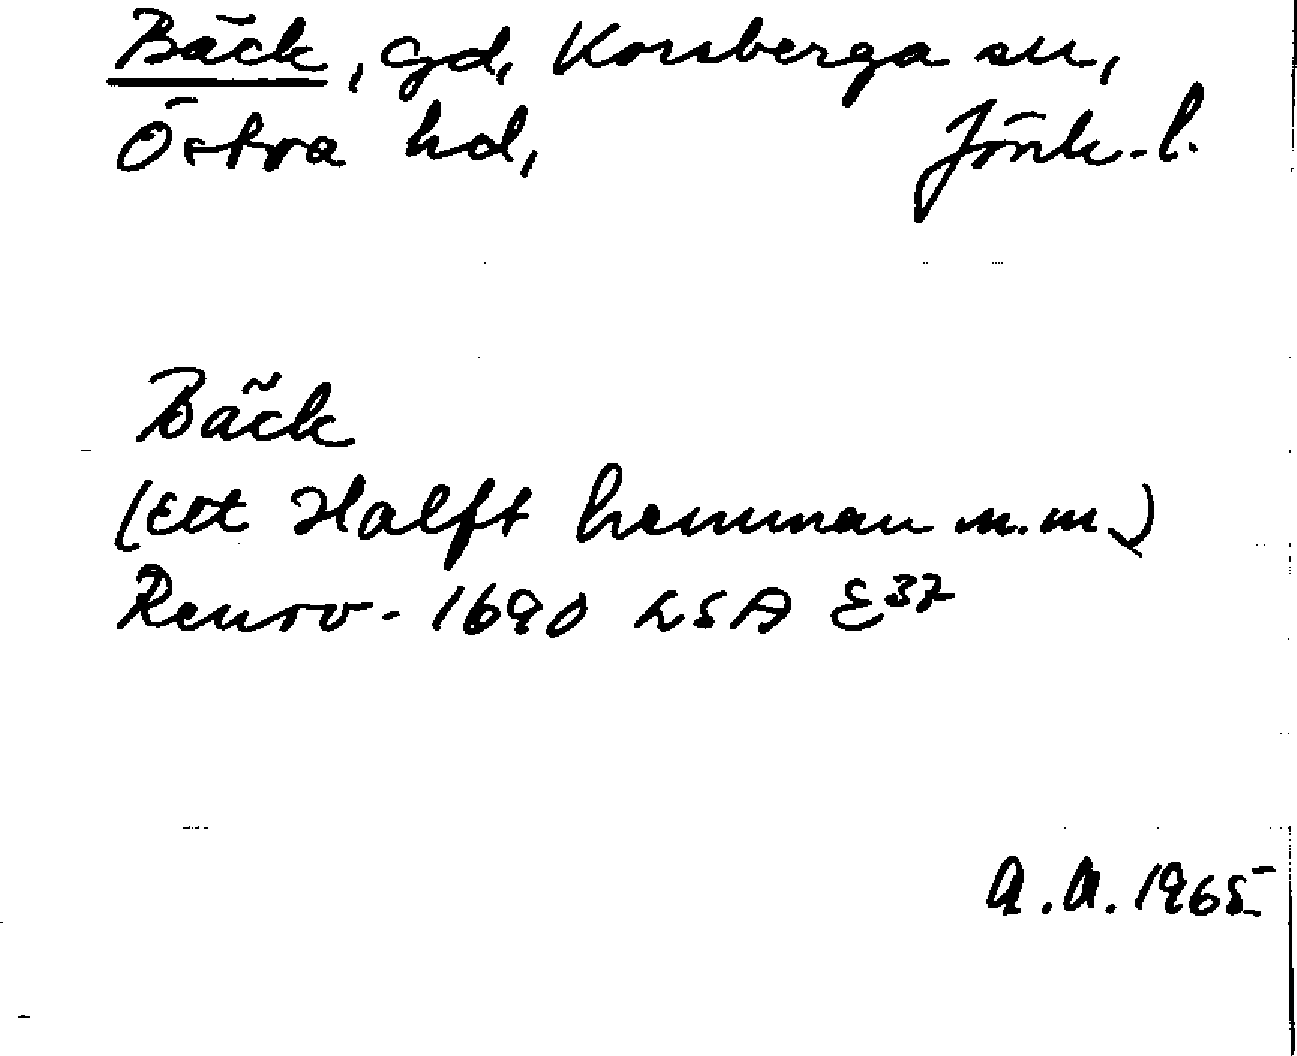 Bäck, gd, Korsberga sn,
Östra hd, Jönk. l.
Bäck
(Ett Halft hemman m.m.)
Renov. 1690 LSA E37
A.A. 1965